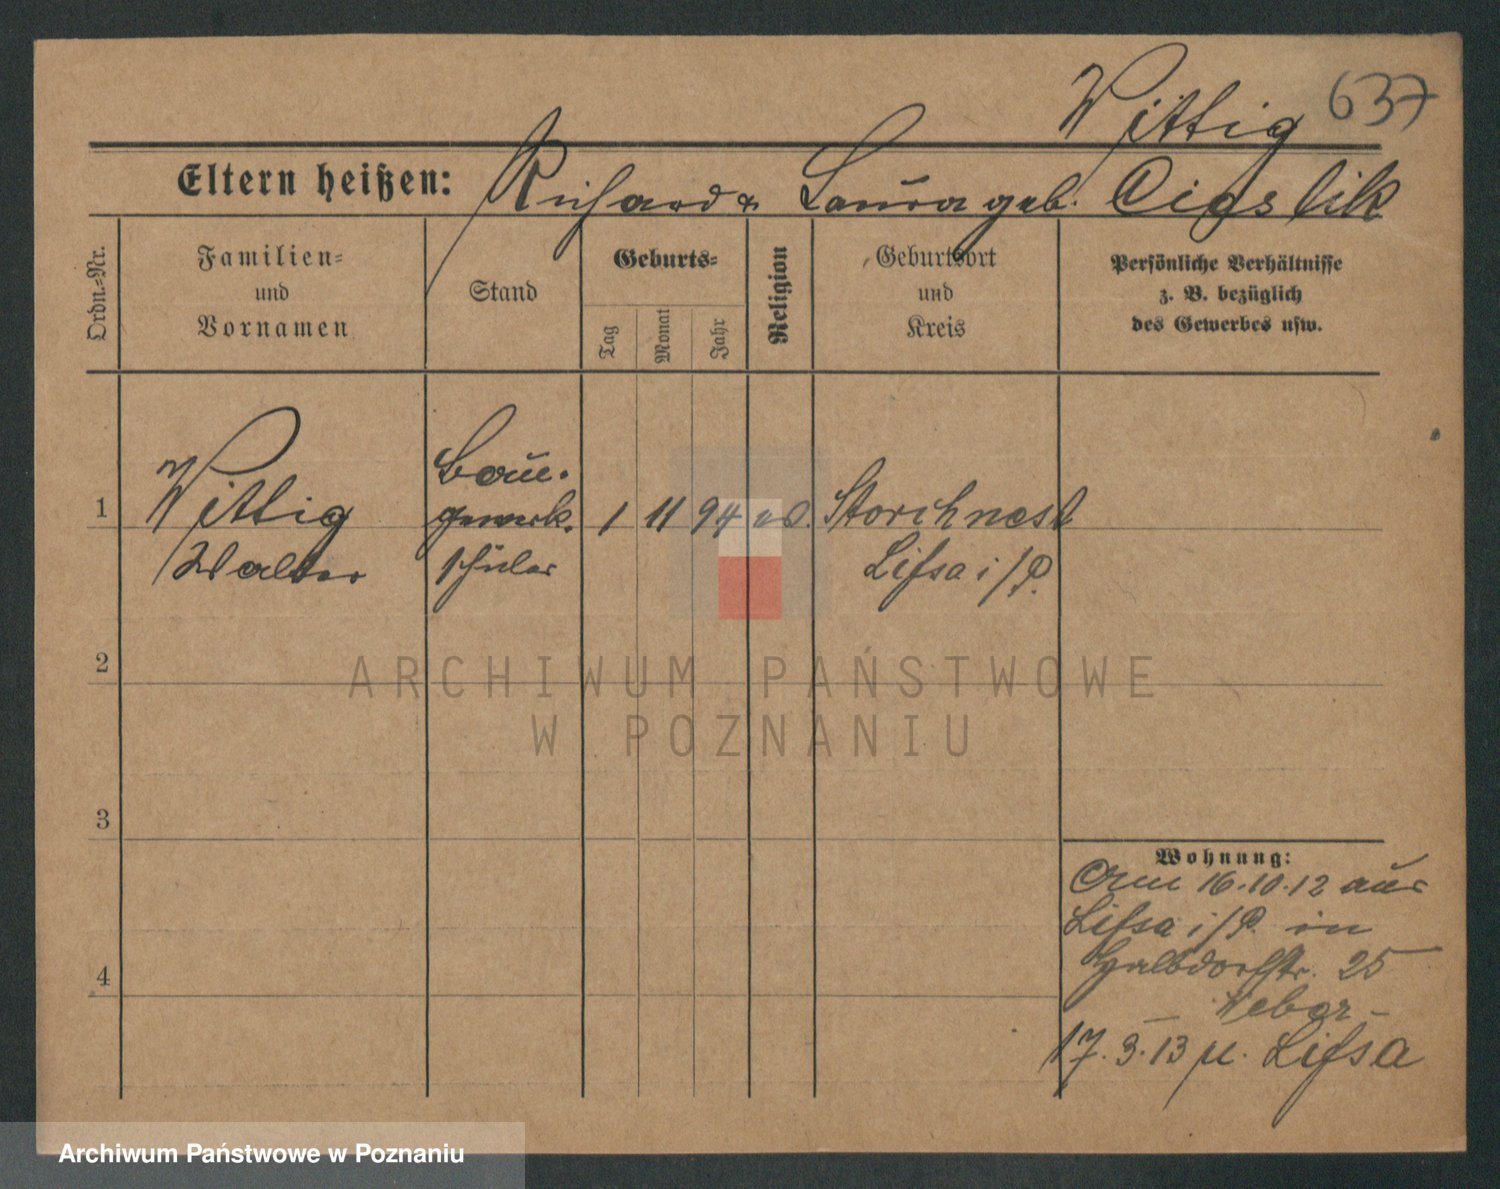 Wittig 637
Eltern heißen: Richard & Laura geb. Cieslik
Ordn.-Nr.
Familien- und Vornamen
Stand
Geburts-
Tag
Monat
Jahr
Religion
Geburtsort und Kreis
Persönliche Verhältnisse
z. B. bezüglich
des Gewerbes usw.
1
Wittig
Walter
Bau-
gewerk-
schüler
1 11 94 ev.
Storchnest
Lissa i/P.
2
3
4
Wohnung:
Am 16.10.12 aus
Lissa i/P. in
Halbdorfstr. 25
17.3.13 n. Lissa
ARCHIWUM PAŃSTWOWE
W POZNANIU
Archiwum Państwowe w Poznaniu